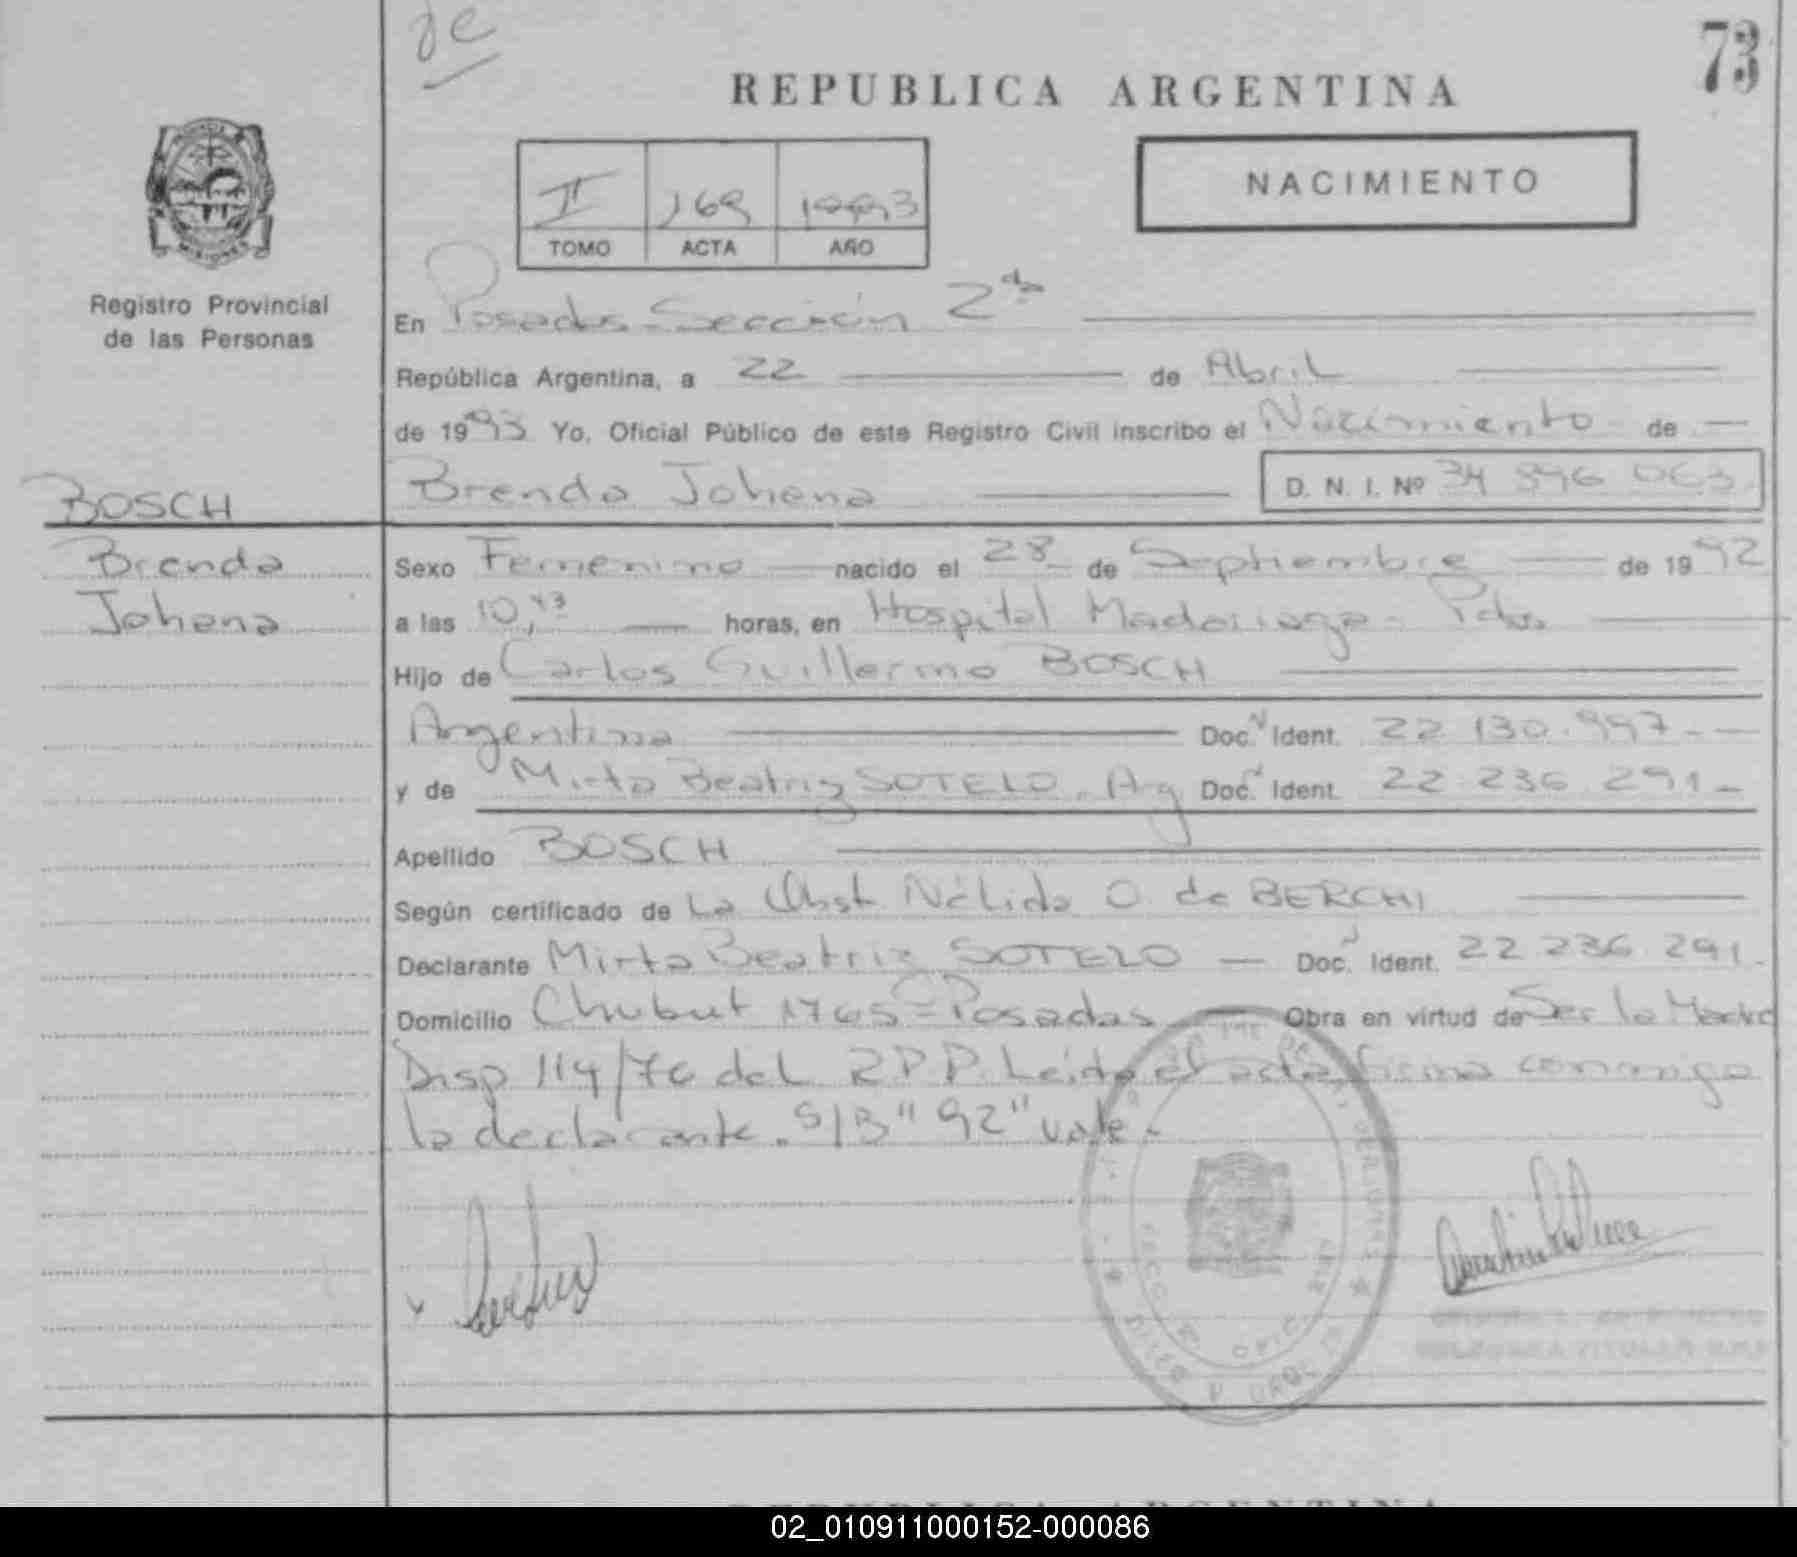 73
REPUBLICA ARGENTINA
NACIMIENTO
II 169 1993
TOMO ACTA AÑO
Registro Provincial
de las Personas
En Posadas - Sección 2da
República Argentina, a 22 de Abril
de 1993 Yo, Oficial Público de este Registro Civil inscribo el Nacimiento de
BOSCH
Brenda
Johana
Brenda Johana D. N. I. Nº 34 896 063
Sexo Femenino nacido el 28 de Septiembre de 1992
a las 10,43 horas, en Hospital Madariaga - Pdas.
Hijo de Carlos Guillermo BOSCH
Argentina Doc. Ident. 22 130.997
y de Mirta Beatriz SOTELO. Arg Doc. Ident. 22 236 291
Apellido BOSCH
Según certificado de La Obst. Nélida O. de BERCHI
Declarante Mirta Beatriz SOTELO Doc. Ident. 22 236 291.
Domicilio Chubut 1765 - Posadas Obra en virtud de Ser la Madre
Disp 114/76 del RPP. Leída el acta, firma conmigo
la declarante. S/B "92" vale.
02_010911000152-000086